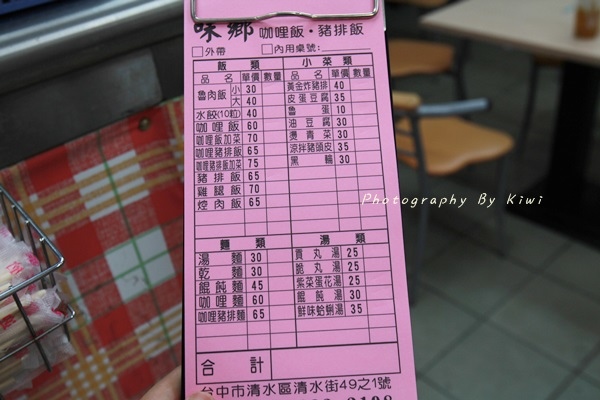 味鄉 咖哩飯·豬排飯
□外帶 □內用桌號:
飯類 小菜類
品名 單價 數量 品名 單價 數量
魯肉飯 小 30 黃金炸豬排 40
大 40 皮蛋豆腐 35
水餃(10粒) 40 魯蛋 10
咖哩飯 60 油豆腐 30
咖哩飯加菜 70 燙青菜 30
咖哩豬排飯 65 涼拌豬頭皮 35
咖哩豬排飯加菜 75 黑輪 30
豬排飯 65
雞腿飯 70
焢肉飯 65
Photography By Kiwi
麵類 湯類
湯麵 30 貢丸湯 25
乾麵 30 脆丸湯 25
餛飩麵 45 紫菜蛋花湯 25
咖哩麵 60 餛飩湯 30
咖哩豬排麵 65 鮮味蛤蜊湯 35
合計
台中市清水區清水街49之1號